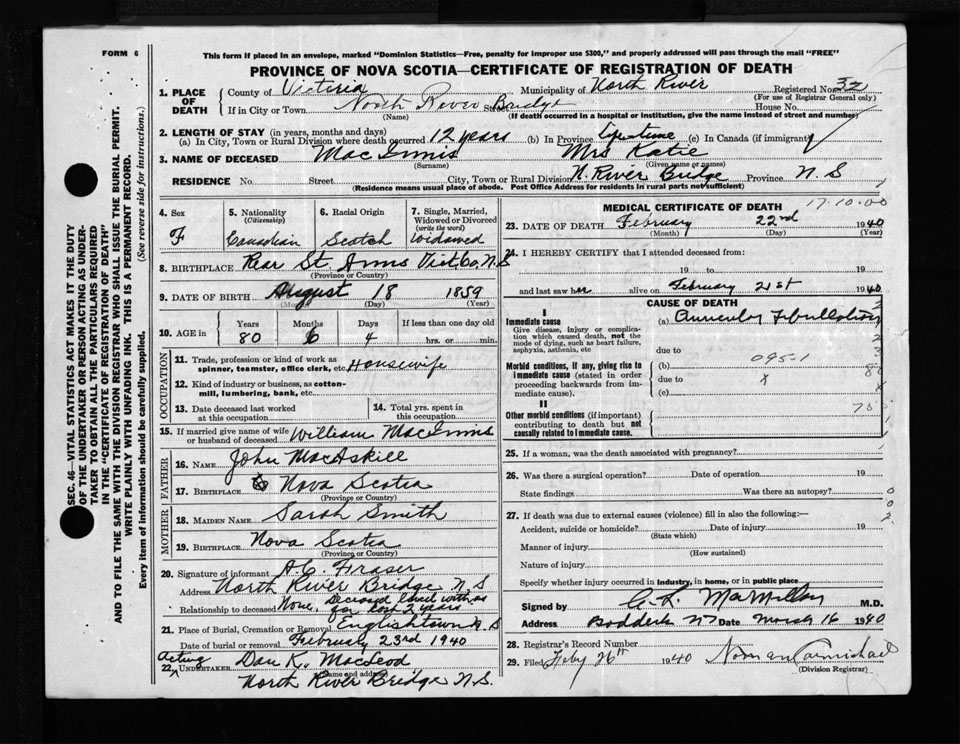 FORM 6
This form if placed in an envelope, marked "Dominion Statistics—Free, penalty for improper use $300," and properly addressed will pass through the mail "FREE"
PROVINCE OF NOVA SCOTIA—CERTIFICATE OF REGISTRATION OF DEATH
1. PLACE OF DEATH County of Victoria Municipality of North River Registered No. 32
(For use of Registrar General only)
If in City or Town North River Street Bridge House No.
(Name) (If death occurred in a hospital or institution, give the name instead of street and number)
2. LENGTH OF STAY (in years, months and days)
(a) In City, Town or Rural Division where death occurred 12 years (b) In Province Lifetime (c) In Canada (if immigrant)
3. NAME OF DECEASED MacInnis Mrs Katie
(Surname) (Given name or names)
RESIDENCE No. Street City, Town or Rural Division N. River Bridge Province N. S
(Residence means usual place of abode. Post Office Address for residents in rural parts not sufficient)
4. Sex F
5. Nationality (Citizenship) Canadian
6. Racial Origin Scotch
7. Single, Married, Widowed or Divorced (write the word) Widowed
8. BIRTHPLACE Rear St. Anns Vict Co, N.S
(Province or Country)
9. DATE OF BIRTH August 18 1859
(Month) (Day) (Year)
10. AGE in Years 80 Months 6 Days 4 If less than one day old hrs. or min.
OCCUPATION
11. Trade, profession or kind of work as spinner, teamster, office clerk, etc. Housewife
12. Kind of industry or business, as cotton-mill, lumbering, bank, etc.
13. Date deceased last worked at this occupation
14. Total yrs. spent in this occupation
15. If married give name of wife or husband of deceased William MacInnis
FATHER
16. Name John MacAskill
17. Birthplace Nova Scotia
(Province or Country)
MOTHER
18. Maiden Name Sarah Smith
19. Birthplace Nova Scotia
(Province or Country)
20. Signature of informant A. C. Fraser
Address North River Bridge N. S
Relationship to deceased None. Deceased lived with us for last 2 years
21. Place of Burial, Cremation or Removal Englishtown N. S
Date of burial or removal February 23rd 1940
Acting
22. UNDERTAKER Dan K. MacLeod
(Name and address)
North River Bridge N.S.
MEDICAL CERTIFICATE OF DEATH
17.10.00
23. DATE OF DEATH February 22nd 1940
(Month) (Day) (Year)
24. I HEREBY CERTIFY that I attended deceased from:
19 to 19
and last saw her alive on February 21st 1940
CAUSE OF DEATH
I
Immediate cause
Give disease, injury or complication which caused death, not the mode of dying, such as heart failure, asphyxia, asthenia, etc
(a) Auricular Fibrillation
due to
Morbid conditions, if any, giving rise to immediate cause (stated in order proceeding backwards from immediate cause).
(b) 095-1
due to x
(c)
II
Other morbid conditions (if important) contributing to death but not causally related to immediate cause.
25. If a woman, was the death associated with pregnancy?
26. Was there a surgical operation? Date of operation 19
State findings Was there an autopsy?
27. If death was due to external causes (violence) fill in also the following:—
Accident, suicide or homicide? Date of injury 19
(State which)
Manner of injury
(How sustained)
Nature of injury
Specify whether injury occurred in industry, in home, or in public place
Signed by C. L. MacMillan M.D.
Address Baddeck NS Date March 16 1940
28. Registrar's Record Number
29. Filed Feby 26th 1940 Norman Carmichael
(Division Registrar)
SEC. 46—VITAL STATISTICS ACT MAKES IT THE DUTY
OF THE UNDERTAKER OR PERSON ACTING AS UNDER-
TAKER TO OBTAIN ALL THE PARTICULARS REQUIRED
IN THE "CERTIFICATE OF REGISTRATION OF DEATH"
AND TO FILE THE SAME WITH THE DIVISION REGISTRAR WHO SHALL ISSUE THE BURIAL PERMIT.
WRITE PLAINLY WITH UNFADING INK. THIS IS A PERMANENT RECORD.
Every item of information should be carefully supplied. (See reverse side for instructions.)